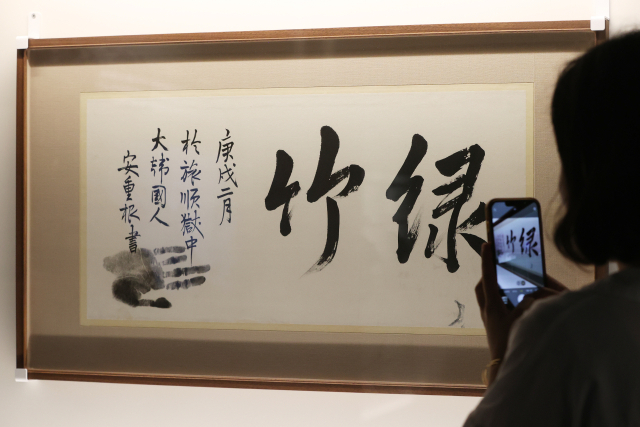 綠竹
庚戌二月
於旅順獄中
大韓國人
安重根書
綠竹